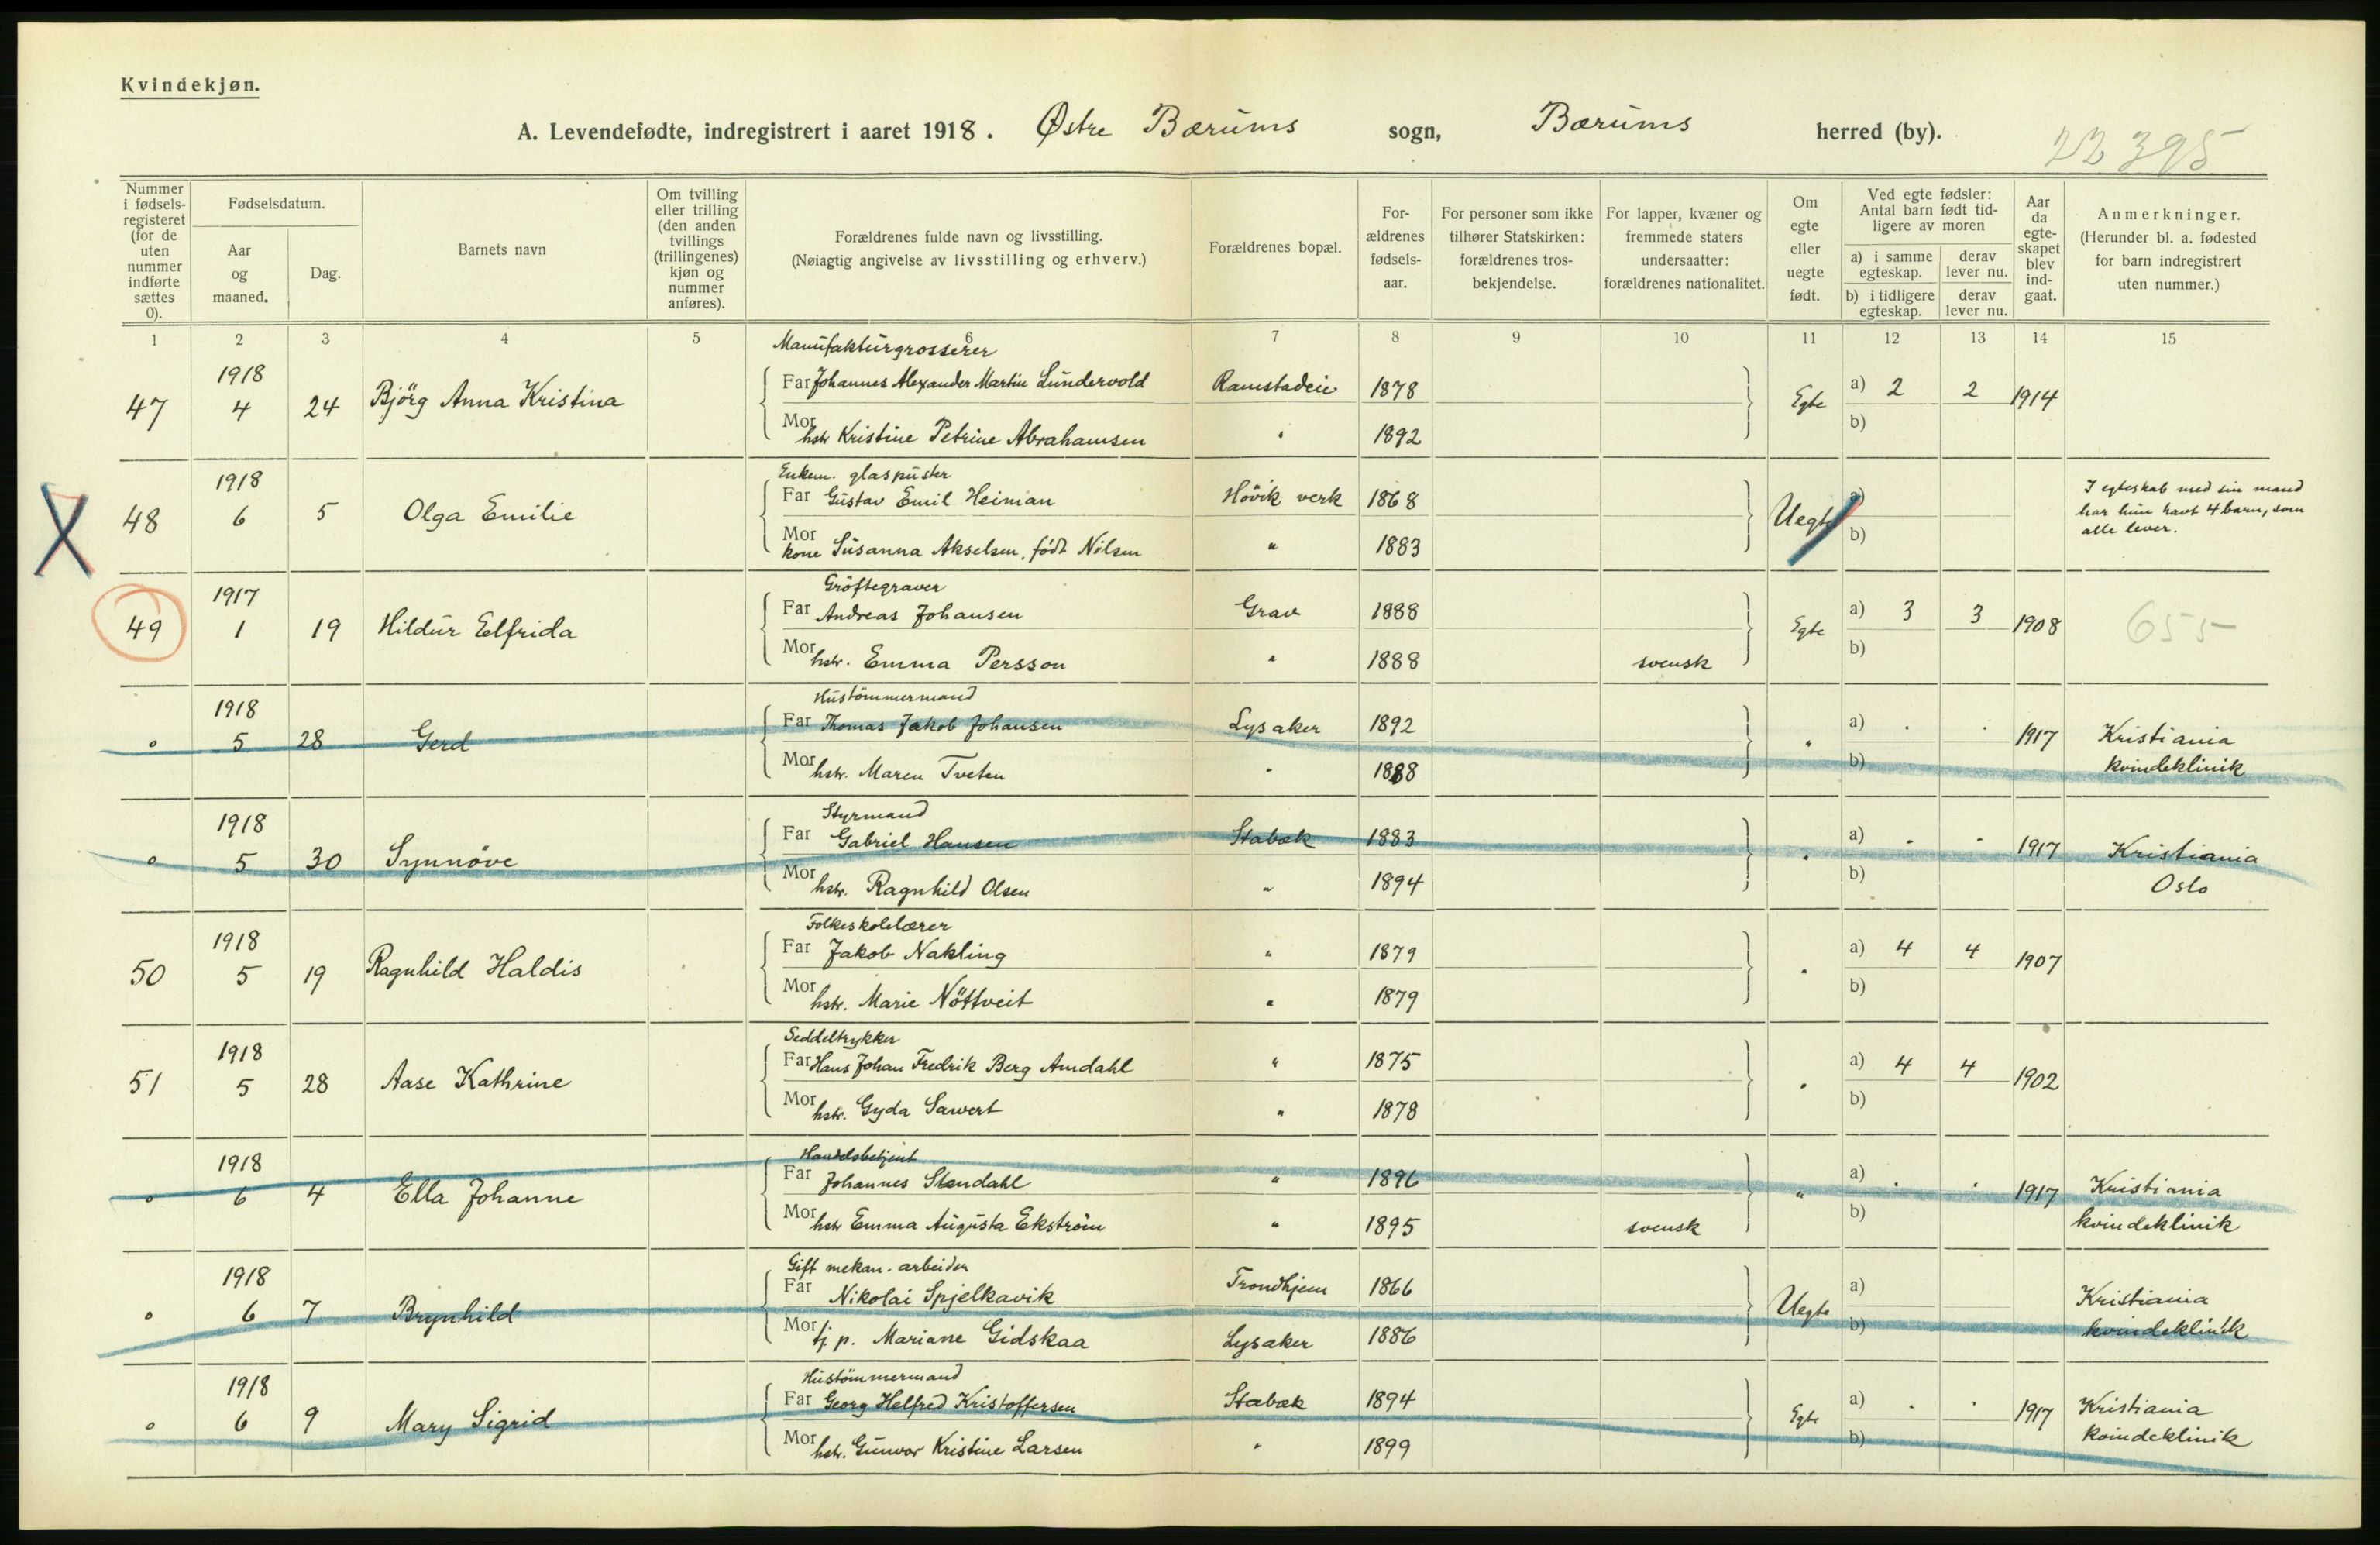 Kvindekjøn.
A. Levendefødte, indregistrert i aaret 1918. Østre Bærums sogn, Bærums herred (by).
22395
Nummer i fødsels-registeret (for de uten nummer indførte sættes 0).
Fødselsdatum.
Aar og maaned.
Dag.
Barnets navn
Om tvilling eller trilling (den anden tvillings (trillingenes) kjøn og nummer anføres).
Forældrenes fulde navn og livsstilling. (Nøiagtig angivelse av livsstilling og erhverv.)
Forældrenes bopæl.
For-ældrenes fødsels-aar.
For personer som ikke tilhører Statskirken: forældrenes tros-bekjendelse.
For lapper, kvæner og fremmede staters undersaatter: forældrenes nationalitet.
Om egte eller uegte født.
Ved egte fødsler: Antal barn født tid-ligere av moren
a) i samme egteskap. derav lever nu.
b) i tidligere egteskap. derav lever nu.
Aar da egte-skapet blev ind-gaat.
Anmerkninger. (Herunder bl. a. fødested for barn indregistrert uten nummer.)
1 2 3 4 5 6 7 8 9 10 11 12 13 14 15
Manufakturgrosserer
47 1918 4 24 Björg Anna Kristina Far Johannes Alexander Martin Lundervold Ramstadeie 1878 Egte a) 2 2 1914
Mor hstr Kristine Petrine Abrahamsen " 1892 b)
Enkem. glaspuster
48 1918 6 5 Olga Emilie Far Gustav Emil Heiman Hövik verk 1868 Uegte a) I egteskab med sin mand har hun havt 4 barn, som alle lever.
Mor kone Susanna Akselsen, födt Nilsen " 1883 b)
Gröftegraver
49 1917 1 19 Hildur Elfrida Far Andreas Johansen Grav 1888 Egte a) 3 3 1908 655
Mor hstr. Emma Persson " 1888 svensk b)
Hustömmermand
0 1918 5 28 Gerd Far Thomas Jakob Johansen Lysaker 1892 " a) . . 1917 Kristiania
Mor hstr. Maren Tveten " 1888 b) kvindeklinik
Styrmand
0 1918 5 30 Synnöve Far Gabriel Hansen Stabæk 1883 " a) . . 1917 Kristiania
Mor hstr. Ragnhild Olsen " 1894 b) Oslo
Folkeskolelærer
50 1918 5 19 Ragnhild Haldis Far Jakob Nakling " 1879 " a) 4 4 1907
Mor hstr. Marie Nöttveit " 1879 b)
Seddeltrykker
51 1918 5 28 Aase Kathrine Far Hans Johan Fredrik Berg Amdahl " 1875 " a) 4 4 1902
Mor hstr. Gyda Sawert " 1878 b)
Handelsbetjent
0 1918 6 4 Ella Johanne Far Johannes Stendahl " 1896 " a) . . 1917 Kristiania
Mor hstr Emma Augusta Ekström " 1895 svensk b) kvindeklinik
Gift mekan. arbeider
0 1918 6 7 Brynhild Far Nikolai Spjelkavik Trondhjem 1866 Uegte a) Kristiania
Mor tj. p. Mariane Gidskaa Lysaker 1886 b) kvindeklinik
Hustömmermand
0 1918 6 9 Mary Sigrid Far Georg Helfred Kristoffersen Stabæk 1894 Egte a) . . 1917 Kristiania
Mor hstr. Gunvor Kristine Larsen " 1899 b) kvindeklinik